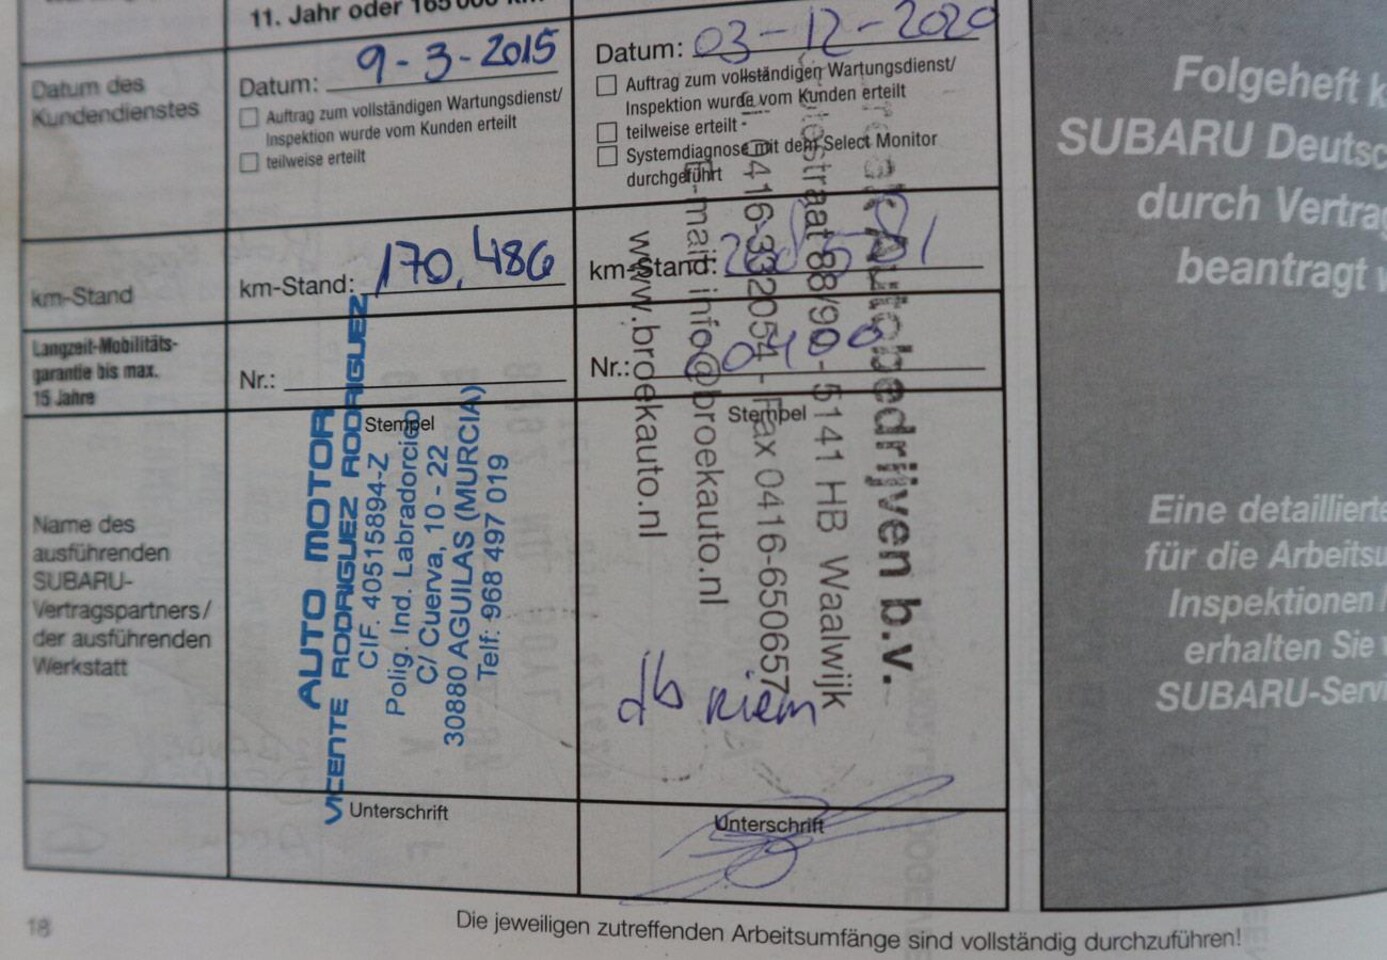 11. Jahr oder 165 000 km
Datum des
Kundendienstes
Datum: 9-3-2015
Auftrag zum vollständigen Wartungsdienst/
Inspektion wurde vom Kunden erteilt
teilweise erteilt
Datum: 03-12-2020
Auftrag zum vollständigen Wartungsdienst/
Inspektion wurde vom Kunden erteilt
teilweise erteilt
Systemdiagnose mit dem Select Monitor
durchgeführt
km-Stand
km-Stand: 170.486
km-Stand:
Langzeit-Mobilitäts-
garantie bis max.
15 Jahre
Nr.:
Nr.:
Name des
ausführenden
SUBARU-
Vertragspartners/
der ausführenden
Werkstatt
Stempel
AUTO MOTOR
VICENTE RODRIGUEZ RODRIGUEZ
CIF. 40515894-Z
Polig. Ind. Labradorcico
C/ Cuerva, 10 - 22
30880 AGUILAS (MURCIA)
Telf: 968 497 019
Stempel
Autobedrijven b.v.
88/90 - 5141 HB Waalwijk
0416-332054 - Fax 0416-650657
E-mail: info@broekauto.nl
www.broekauto.nl
Unterschrift
Unterschrift
18
Die jeweiligen zutreffenden Arbeitsumfänge sind vollständig durchzuführen!
Folgeheft
SUBARU
durch
beantragt
Eine
für die
Inspektionen
erhalten Sie